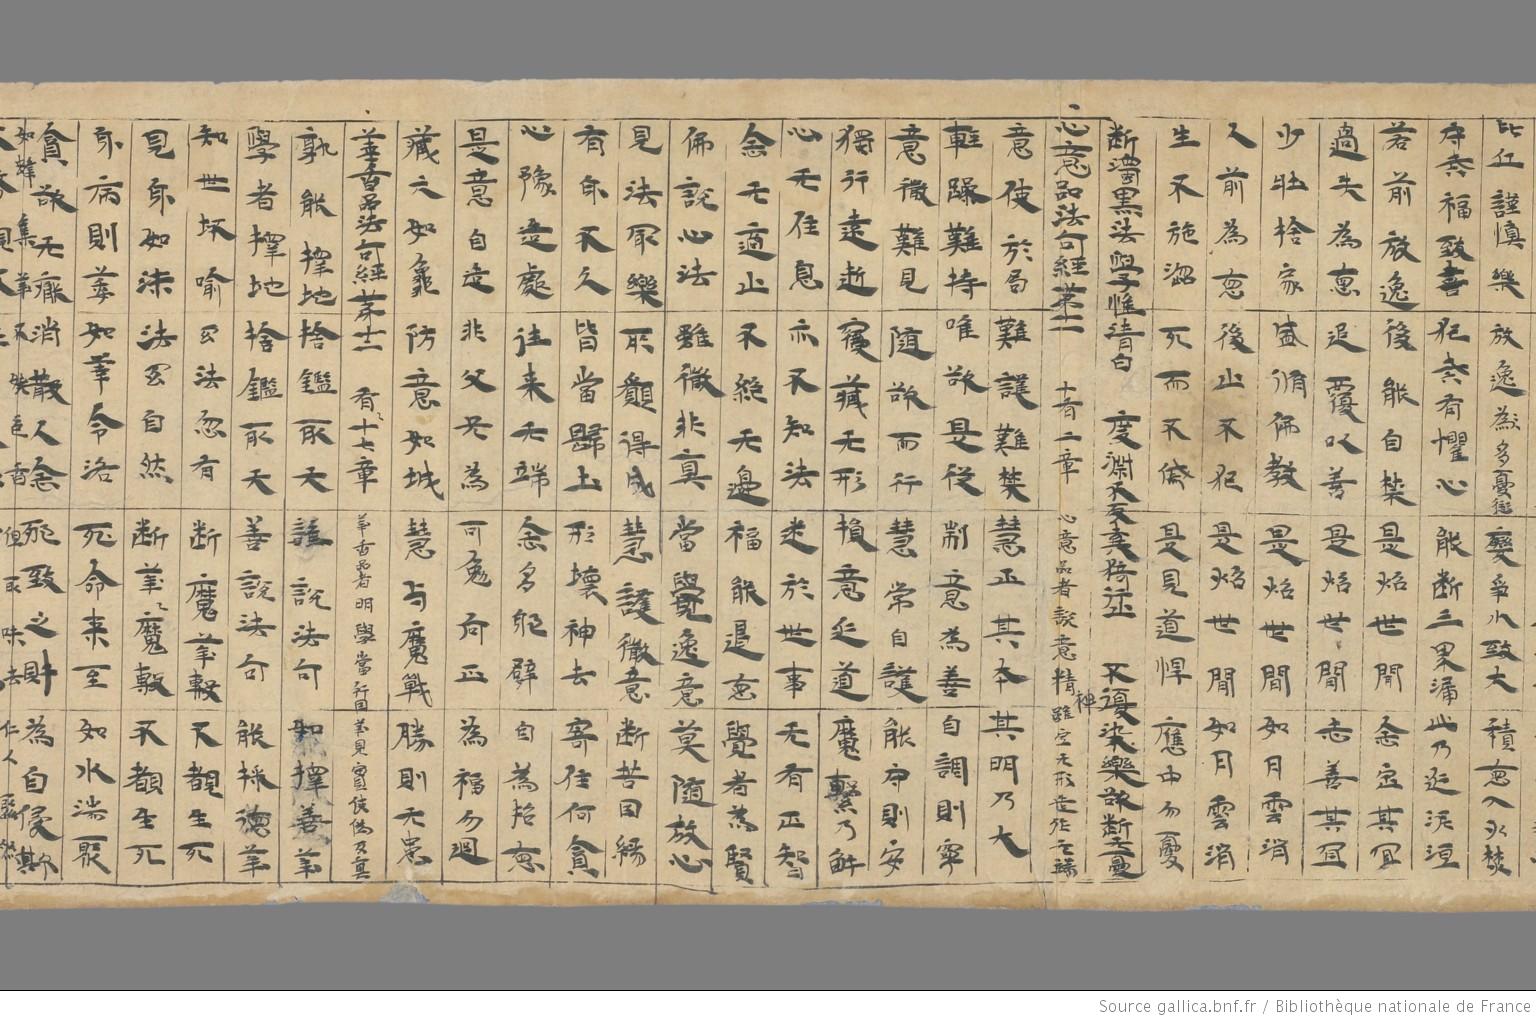 比丘謹慎樂 放逸為多憂 變爭小致大 積惡入火焚
守戒福致喜 犯戒有懼心 能断三界漏 此乃近泥洹
若前放逸 後能自禁 是炤世間 念定其宜
過失為惡 追覆以善 是炤世間 念善其宜
少壯捨家 盛脩佛教 是炤世間 如月雲消
人前為惡 後止不犯 是炤世間 如月雲消
生不施惱 死而不慼 是見道悍 應中勿憂
断濁黒法學惟清白 度淵不反棄猗行止 不復染樂欲断無憂
心意品法句經第十一 十有二章 心意品者說意精神雖空无形造作无竭
意使於苟 難護難禁 慧正其本 其明乃大
輕躁難持 唯欲是從 制意為善 自調則寧
意微難見 隨欲而行 慧常自護 能守則安
獨行遠逝 寢藏无形 損意近道 魔繫乃解
心无住息 亦不知法 迷於世事 无有正智
念无適止 不絕无邊 福能遏惡 覺者為賢
佛說心法 雖微非真 當覺逸意 莫隨放心
見法冣樂 所願得成 慧護微意 断苦因緣
有身不久 皆當歸土 形壞神去 寄住何貪
心豫造處 往来无端 念多邪僻 自為招惡
是意自造 非父母為 可勉向正 為福勿迴
藏六如龜 防意如城 慧与魔戰 勝則无患
華香品法句經第十二 有十七章 華香品者明學當行因華見實使偽反真
孰能擇地 捨鑑取天 誰說法句 如擇善華
學者擇地 捨鑑取天 善說法句 能採德華
知世坏喻 幻法忽有 断魔華敷 不覩生死
見身如沫 幻法自然 断華魔敷 不覩生死
身病則萎 如華零落 死命来至 如水湍聚
貪欲无厭 消散人念 邪致之財 為自侵欺
如蜂集華 不嬈色香 但取味去 仁入聚然